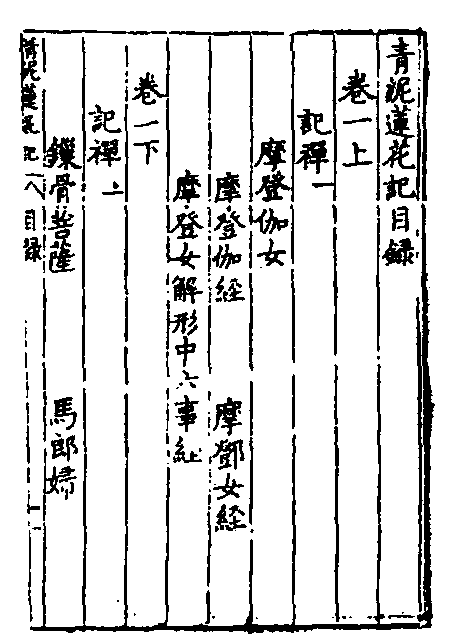 青泥蓮花記目録
卷一上
記禪一
摩登伽女
摩登伽經 摩鄧女經
摩登女解形中六事經
卷一下
記禪二
鏁骨菩薩 馬郎婦
青泥蓮花記 八 目録 一